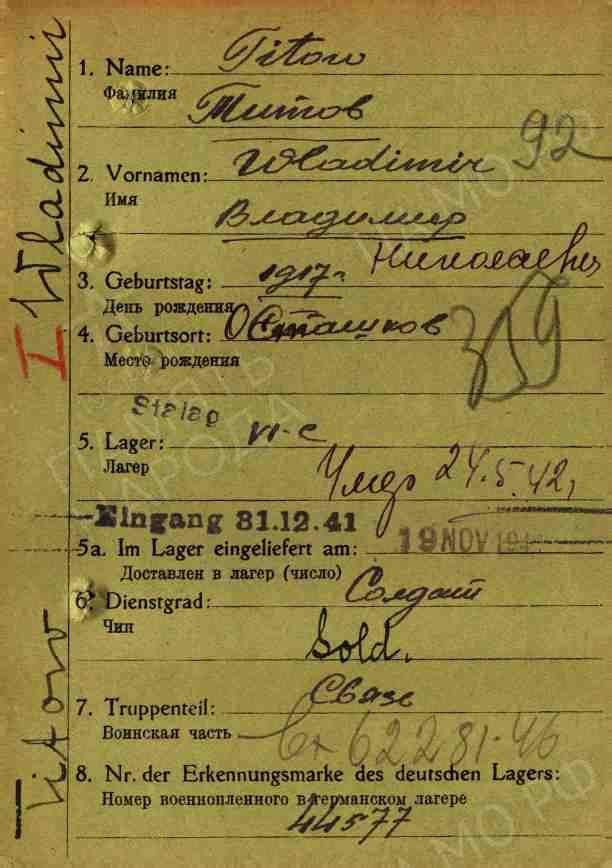 Titow Wladimir
I
1. Name: Titow
Фамилия
Титов
92
2. Vornamen: Wladimir
Имя
Владимир
Николаевич
3. Geburtstag: 1917 г.
День рождения
4. Geburtsort: Осташков
Место рождения
Stalag
5. Lager: VI-C
Лагер
Умер 24.5.42,
Eingang 31.12.41
5a. Im Lager eingeliefert am: 19 NOV
Доставлен в лагер (число)
6. Dienstgrad: Солдат
Чин
Sold.
7. Truppenteil: Связь
Воинская часть
62281-46
8. Nr. der Erkennungsmarke des deutschen Lagers:
Номер военнопленного в германском лагере
44577